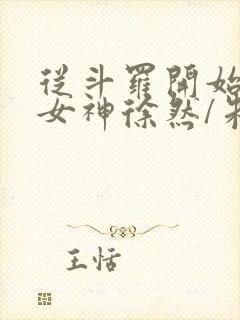 從斗羅開始
女神徐然/朱
王恬